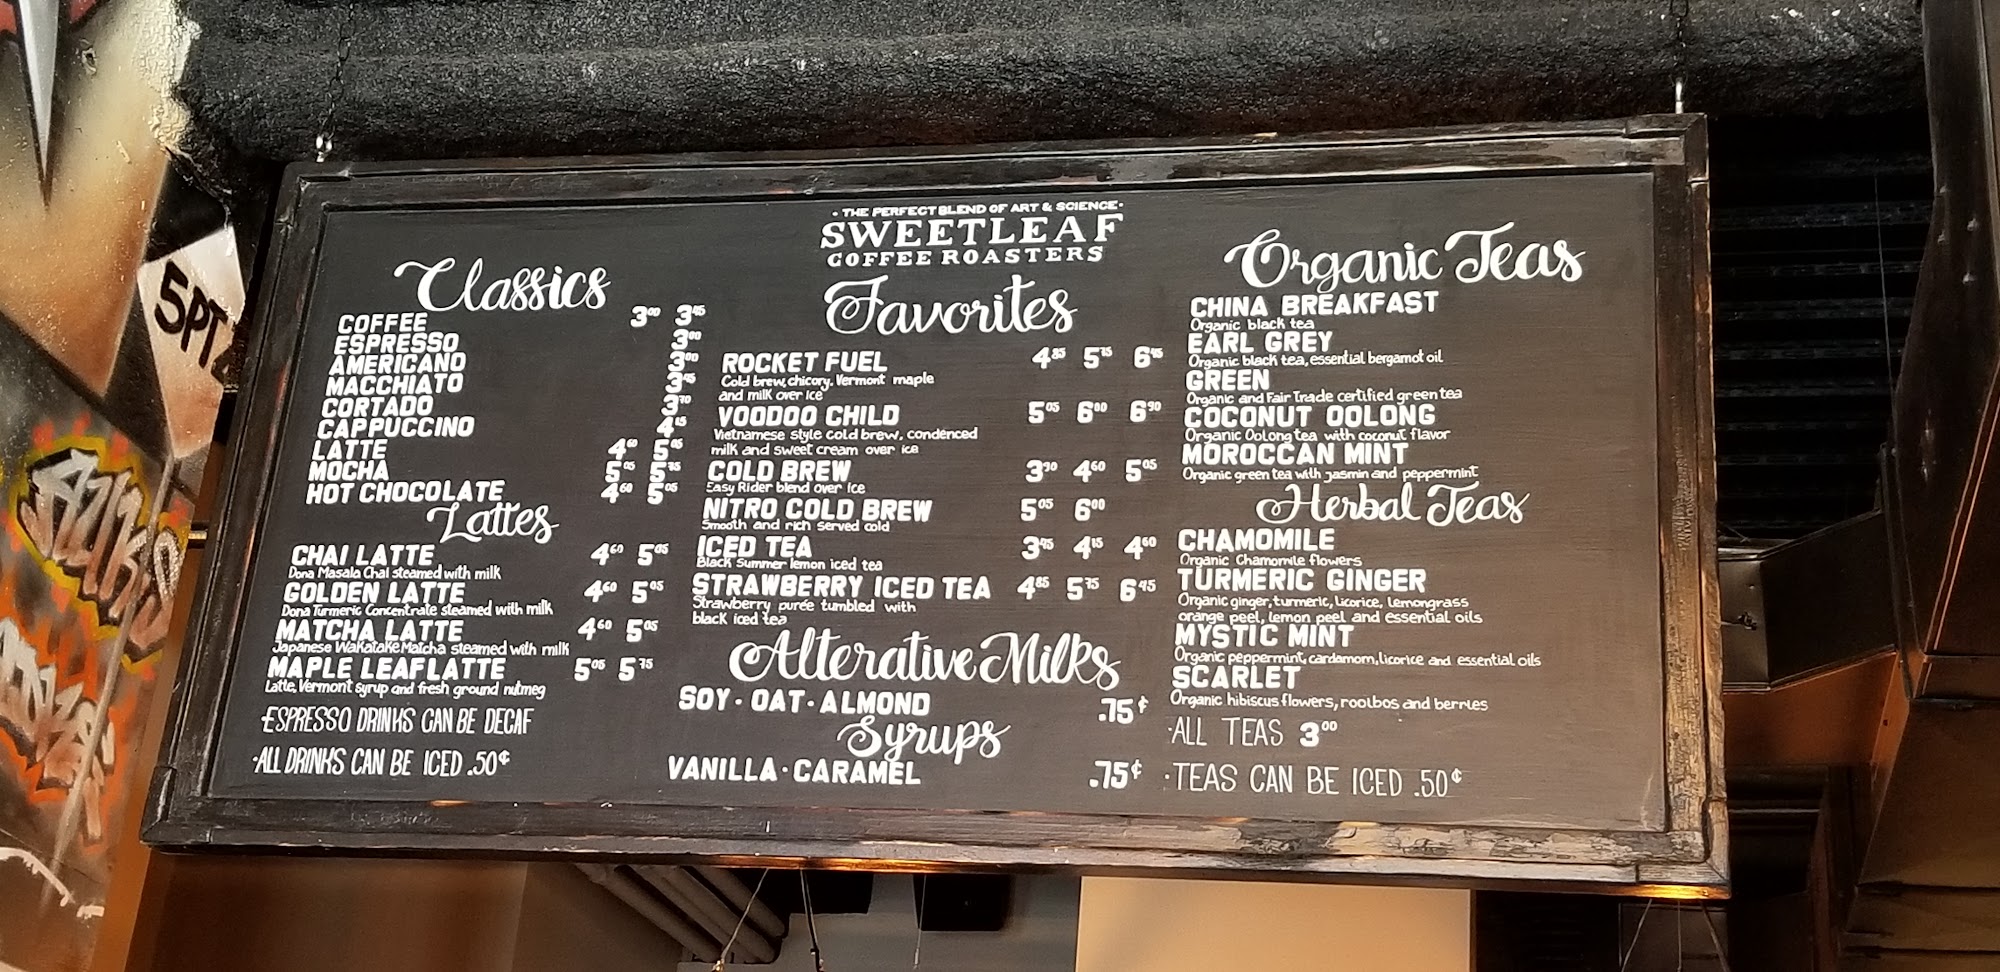 5PTZ
· THE PERFECT BLEND OF ART & SCIENCE ·
SWEETLEAF
COFFEE ROASTERS
Classics
COFFEE 3.00 3.45
ESPRESSO 3.00
AMERICANO 3.00
MACCHIATO 3.45
CORTADO 3.70
CAPPUCCINO 4.15
LATTE 4.60 5.05
MOCHA 5.05 5.75
HOT CHOCOLATE 4.60 5.05
Lattes
CHAI LATTE 4.60 5.05
Dona Masala Chai steamed with milk
GOLDEN LATTE 4.60 5.05
Dona Turmeric Concentrate steamed with milk
MATCHA LATTE 4.60 5.05
Japanese Wakatake Matcha steamed with milk
MAPLE LEAF LATTE 5.05 5.75
Latte, Vermont syrup and fresh ground nutmeg
ESPRESSO DRINKS CAN BE DECAF
·ALL DRINKS CAN BE ICED .50¢
Favorites
ROCKET FUEL 4.85 5.75 6.45
Cold brew, chicory, Vermont maple
and milk over ice
VOODOO CHILD 5.05 6.00 6.90
Vietnamese style cold brew, condenced
milk and sweet cream over ice
COLD BREW 3.90 4.60 5.05
Easy Rider blend over ice
NITRO COLD BREW 5.05 6.00
Smooth and rich served cold
ICED TEA 3.75 4.15 4.60
Black Summer lemon iced tea
STRAWBERRY ICED TEA 4.85 5.75 6.45
Strawberry purée tumbled with
black iced tea
Alterative Milks
SOY · OAT · ALMOND .75¢
Syrups
VANILLA · CARAMEL .75¢
Organic Teas
CHINA BREAKFAST
Organic black tea
EARL GREY
Organic black tea, essential bergamot oil
GREEN
Organic and Fair Trade certified green tea
COCONUT OOLONG
Organic Oolong tea with coconut flavor
MOROCCAN MINT
Organic green tea with jasmin and peppermint
Herbal Teas
CHAMOMILE
Organic Chamomile flowers
TURMERIC GINGER
Organic ginger, turmeric, licorice, lemongrass
orange peel, lemon peel and essential oils
MYSTIC MINT
Organic peppermint, cardamom, licorice and essential oils
SCARLET
Organic hibiscus flowers, rooibos and berries
·ALL TEAS 3.00
·TEAS CAN BE ICED .50¢